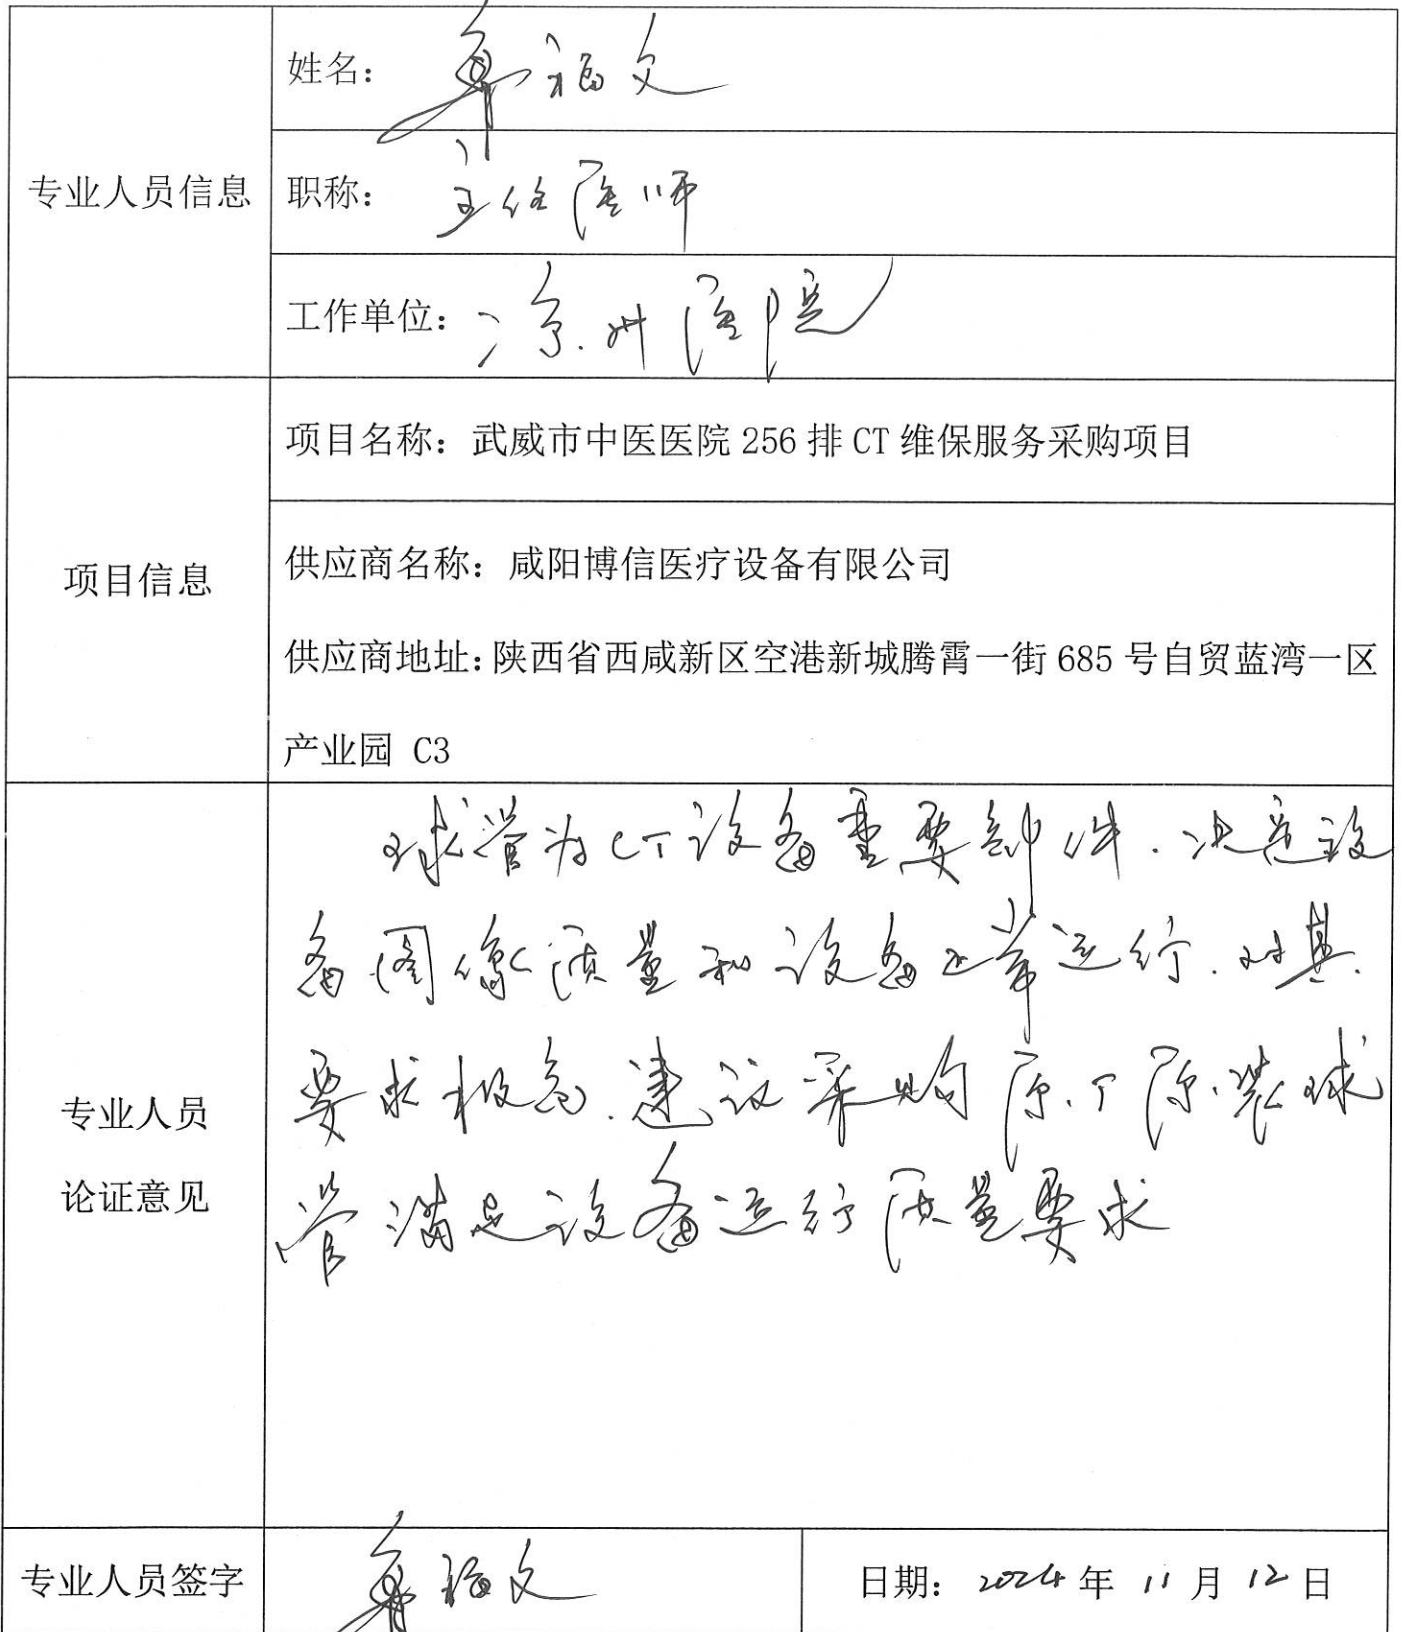 姓名： 福文
专业人员信息
职称： 主任医师
工作单位： 凉州医院
项目名称：武威市中医医院 256 排 CT 维保服务采购项目
项目信息
供应商名称：咸阳博信医疗设备有限公司
供应商地址：陕西省西咸新区空港新城腾霄一街 685 号自贸蓝湾一区
产业园 C3
专业人员
论证意见
球管为CT设备重要部件.决定设
备图像质量和设备正常运行.对其
要求极高.建议采购原厂原装球
管满足设备运行质量要求
专业人员签字 福文 日期： 2024 年 11 月 12 日